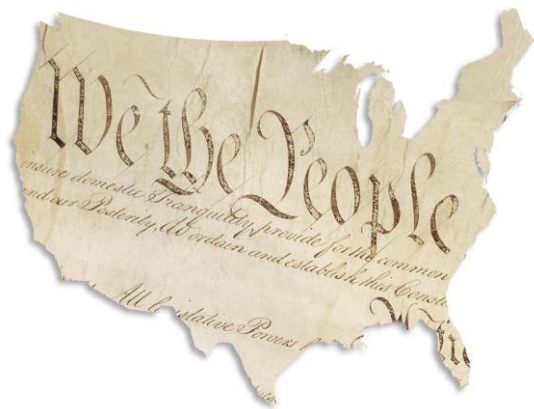 We the People
insure domestic Tranquility, provide for the common
and our Posterity, do ordain and establish this Const
All legislative Powers
We the